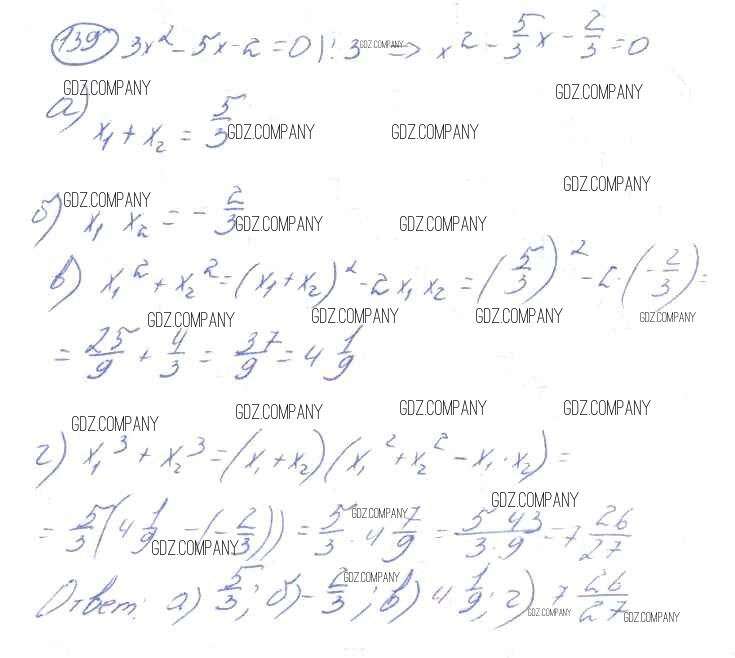 139 3x² - 5x - 2 = 0 |:3 => x² - 5/3 x - 2/3 = 0
GDZ.COMPANY
GDZ.COMPANY GDZ.COMPANY
а) x₁ + x₂ = 5/3
GDZ.COMPANY GDZ.COMPANY
GDZ.COMPANY GDZ.COMPANY
б) x₁ x₂ = - 2/3
GDZ.COMPANY GDZ.COMPANY
в) x₁² + x₂² = (x₁ + x₂)² - 2 x₁ x₂ = (5/3)² - 2 · (-2/3) =
GDZ.COMPANY GDZ.COMPANY GDZ.COMPANY GDZ.COMPANY
= 25/9 + 4/3 = 37/9 = 4 1/9
GDZ.COMPANY GDZ.COMPANY GDZ.COMPANY GDZ.COMPANY
г) x₁³ + x₂³ = (x₁ + x₂)(x₁² + x₂² - x₁ · x₂) =
GDZ.COMPANY
= 5/3 (4 1/9 - (-2/3)) = 5/3 · 4 7/9 = 5 43/3·9 = 7 26/27
GDZ.COMPANY GDZ.COMPANY
Ответ: а) 5/3; б) - 2/3; в) 4 1/9; г) 7 26/27
GDZ.COMPANY GDZ.COMPANY GDZ.COMPANY